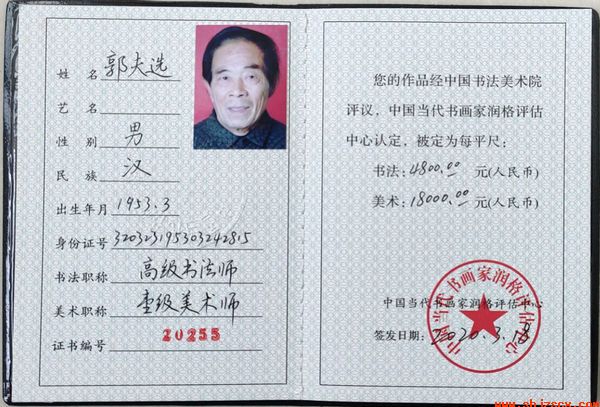 姓 名 郭夫选
艺 名
性 别 男
民 族 汉
出生年月 1953.3
身份证号 320323195303242815
书法职称 高级书法师
美术职称 壹级美术师
证书编号 20255
您的作品经中国书法美术院
评议，中国当代书画家润格评估
中心认定，被定为每平尺：
书法：4800.00 元(人民币)
美术：18000.00 元(人民币)
中国当代书画家润格评估中心
签发日期：2020.3.18
中国当代书画家润格评估中心